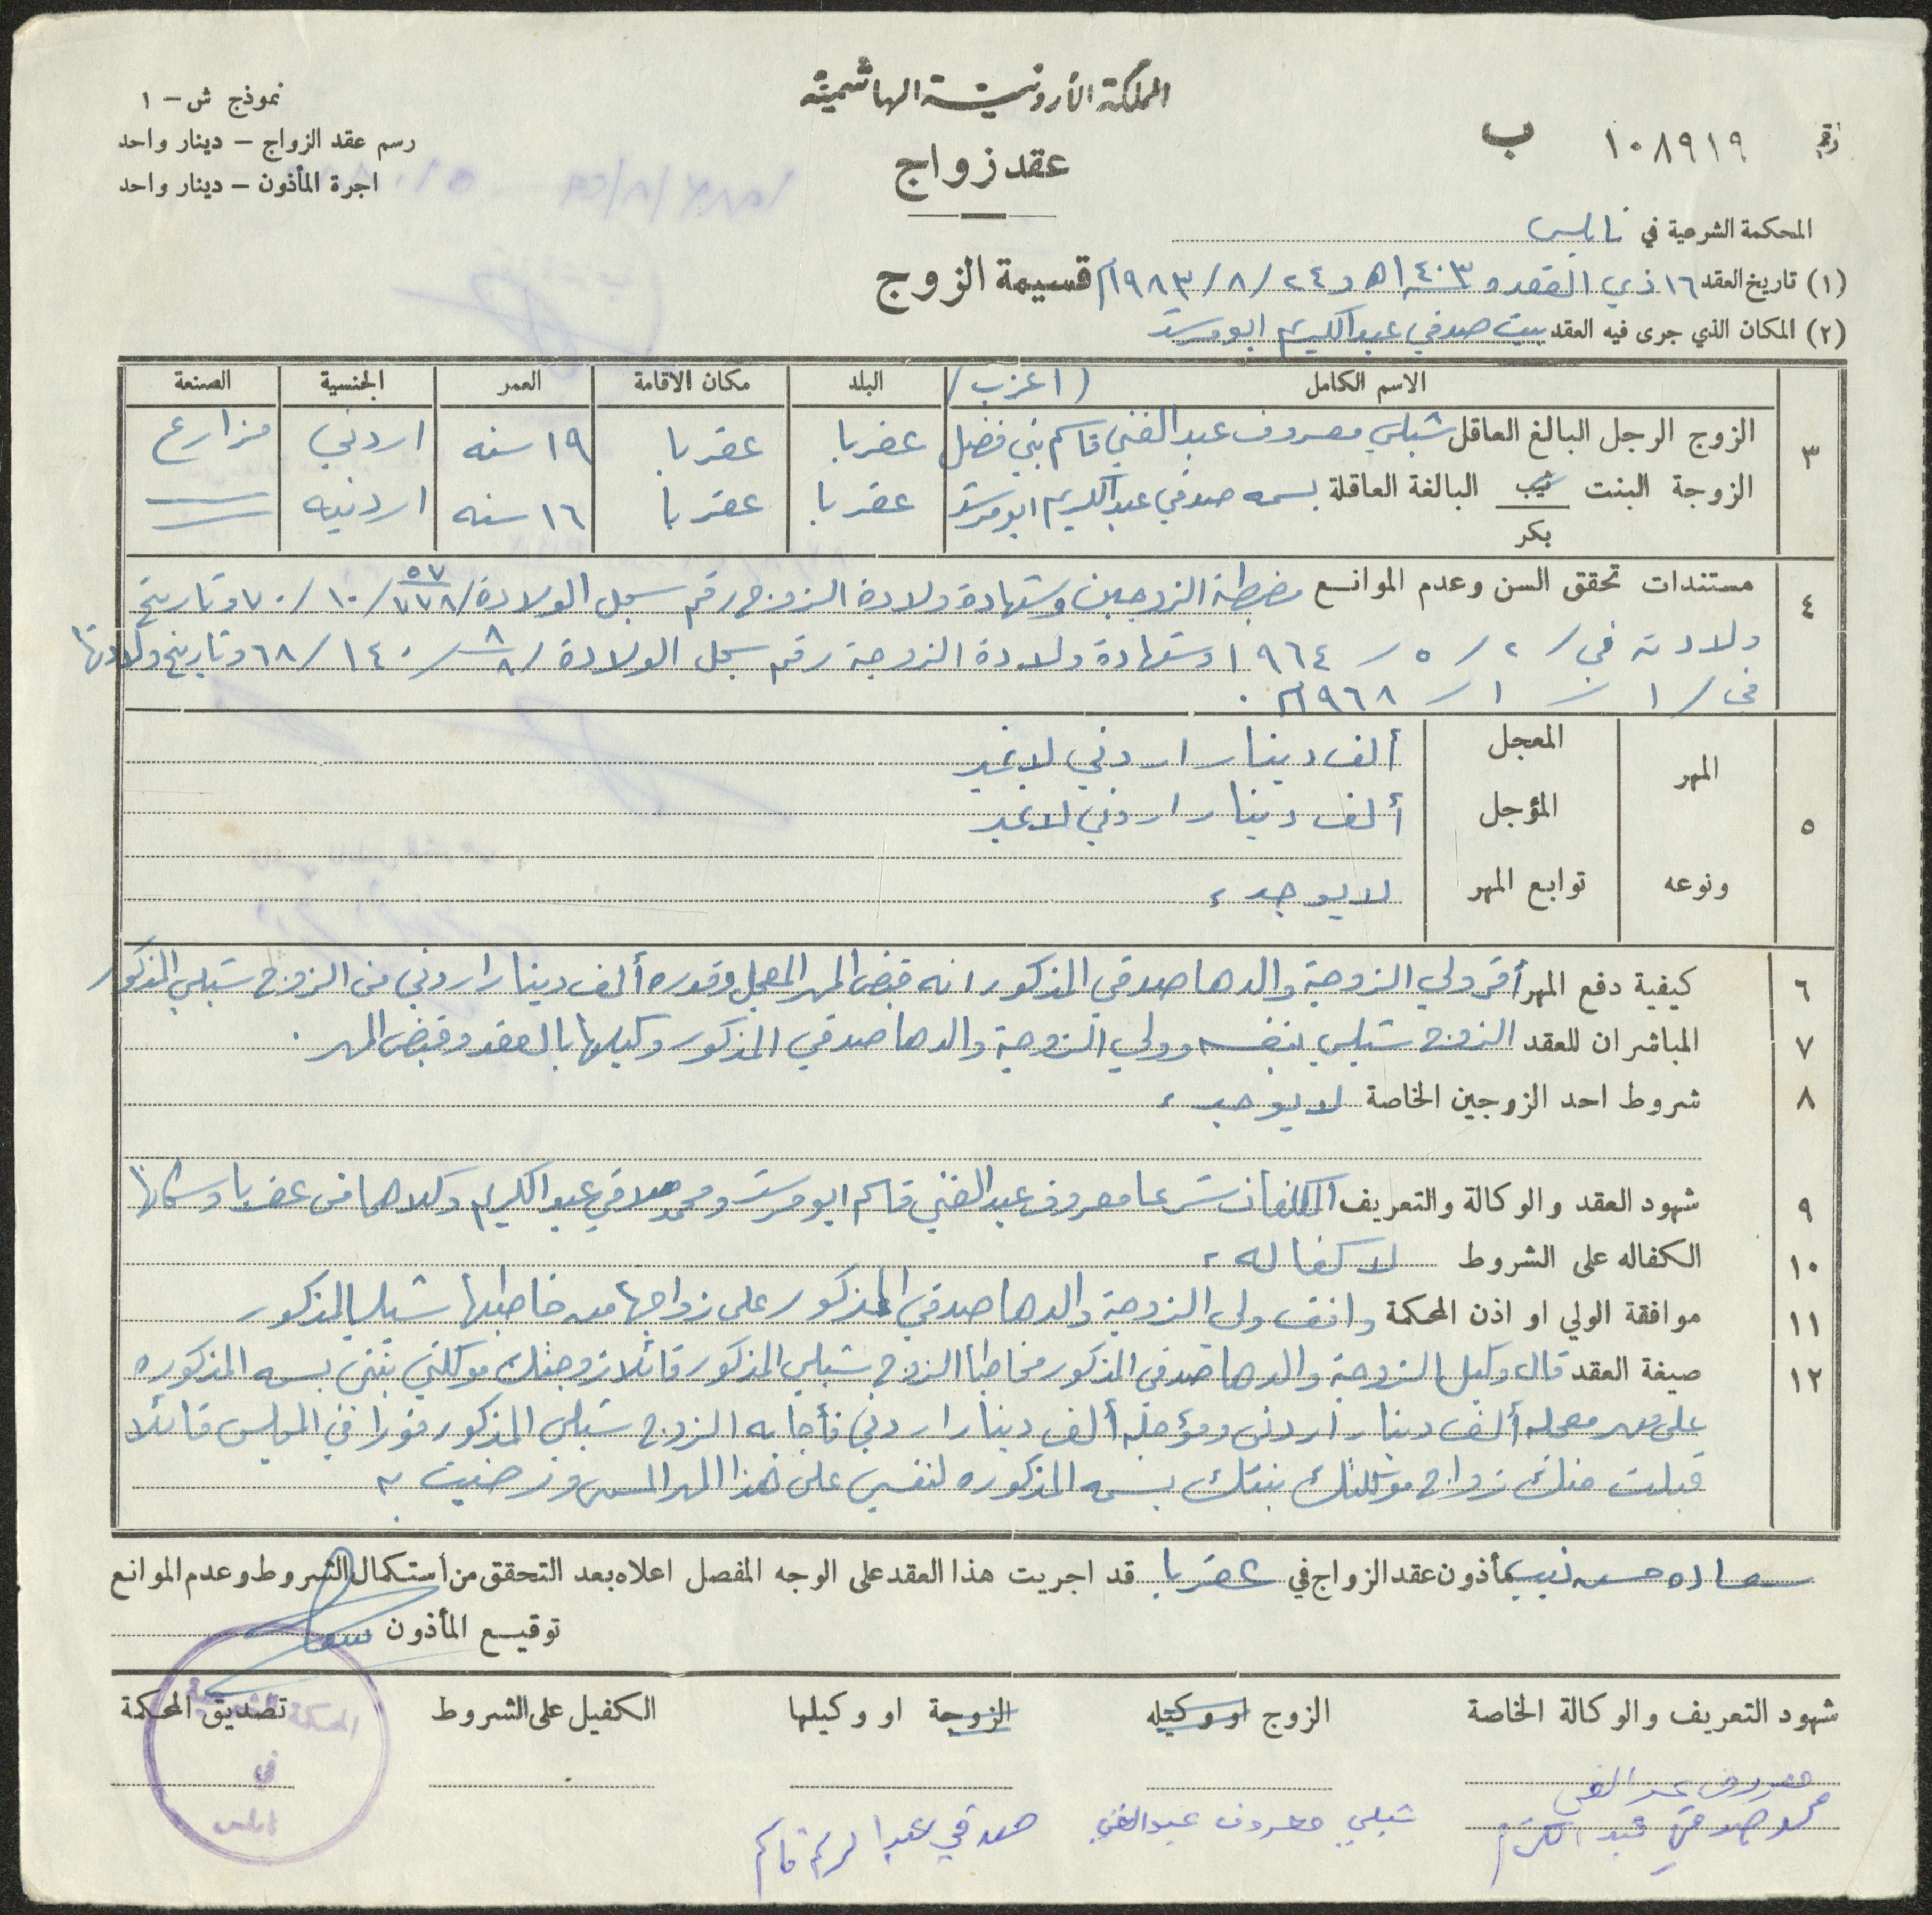 المملكة الأردنية الهاشمية
نموذج ش - ١
رسم عقد الزواج - دينار واحد
اجرة المأذون - دينار واحد
عقد زواج
رقم ١٠٨٩١٩ ب
المحكمة الشرعية في نابلس
(١) تاريخ العقد ١٦ ذي القعده ١٤٠٣هـ و ٢٤ / ٨ / ١٩٨٣م
قسيمة الزوج
(٢) المكان الذي جرى فيه العقد بيت صدقي عبد الكريم ابو مرشد
٣ الاسم الكامل ( اعزب ) البلد مكان الاقامة العمر الجنسية الصنعة
الزوج الرجل البالغ العاقل شبلي معروف عبد الغني قاسم بني فضل عقربا عقربا ١٩ سنه اردني مزارع
الزوجة البنت ثيب البالغة العاقلة بسمه صدقي عبد الكريم ابو مرشد عقربا عقربا ١٦ سنه اردنيه
بكر
٤ مستندات تحقق السن وعدم الموانع مضبطة الزوجين وشهادة ولادة الزوج رقم سجل الولادة / ٥٧ / ٧٧٨ / ١٠ / ٧٠ وتاريخ
ولادته في / ٢ / ٥ / ١٩٦٤ وشهادة ولادة الزوجة رقم سجل الولادة / ٨ / ٨ / ١٤٠ / ٦٨ وتاريخ ولادتها
في / ١ / ١ / ١٩٦٨م .
٥ المهر المعجل ألف دينار اردني لا غير
المؤجل ألف دينار اردني لا غير
ونوعه توابع المهر لا يوجد ،
٦ كيفية دفع المهر أقر ولي الزوجة والدها صدقي المذكور انه قبض المهر المعجل وقدره ألف دينار اردني من الزوج شبلي المذكور
٧ المباشران للعقد الزوج شبلي بنفسه وولي الزوجة والدها صدقي المذكور وكيلها بالعقد وقبض المهر .
٨ شروط احد الزوجين الخاصة لا يوجد ،
٩ شهود العقد والوكالة والتعريف المكلفان شرعا معروف عبد الغني قاسم ابو مرشد ومحمد صدقي عبد الكريم وكلاهما من عقربا وسكانها
١٠ الكفاله على الشروط لا كفاله ،
١١ موافقة الولي او اذن المحكمة وافق ولي الزوجة والدها صدقي المذكور على زواجها من خاطبها شبلي المذكور
١٢ صيغة العقد قال وكيل الزوجة والدها صدقي المذكور مخاطبا الزوج شبلي المذكور قائلا زوجتك موكلتي بنتي بسمه المذكوره
على مهر معجله ألف دينار اردني ومؤجله ألف دينار اردني فأجابه الزوج شبلي المذكور فورا في المجلس قائلا
قبلت منك زواج موكلتك بنتك بسمه المذكوره لنفسي على هذا المهر المسمى ورضيت به
سعاده حسن نجيب مأذون عقد الزواج في عقربا قد اجريت هذا العقد على الوجه المفصل اعلاه بعد التحقق من أستكمال الشروط وعدم الموانع
توقيع المأذون
شهود التعريف والوكالة الخاصة الزوج او وكيله الزوجة او وكيلها الكفيل على الشروط تصديق المحكمة
معروف عبد الغني
محمد صدقي عبد الكريم
شبلي معروف عبد الغني
صدقي عبد الكريم قاسم
المحكمة الشرعية
في
نابلس